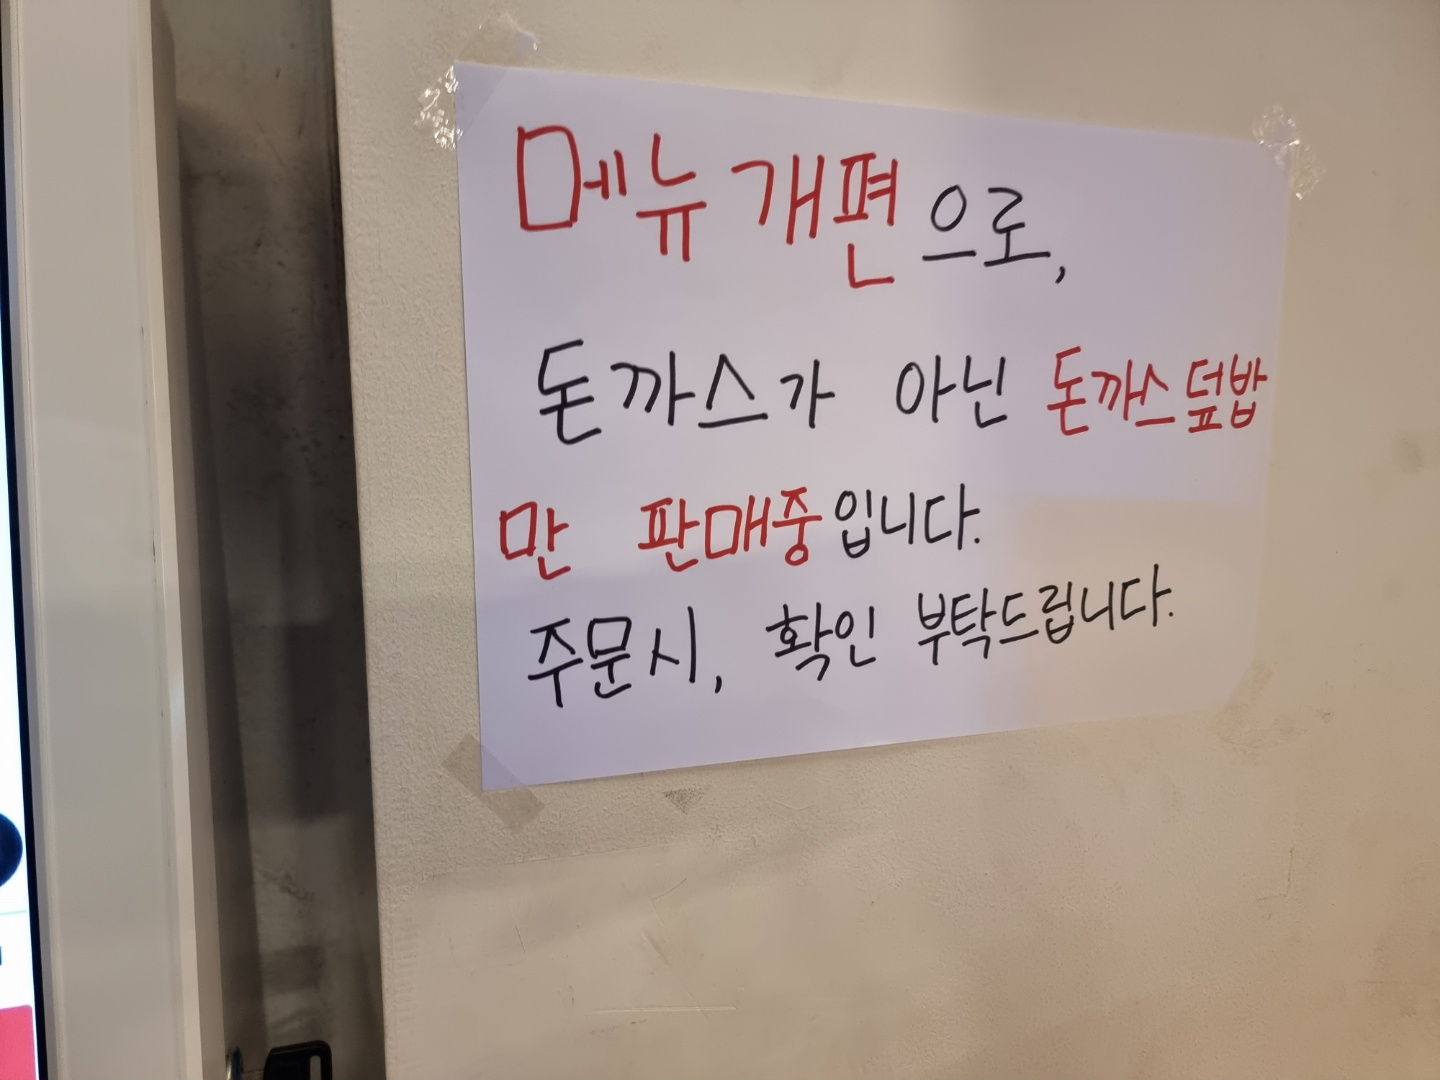 메뉴개편으로,
돈까스가 아닌 돈까스덮밥
만 판매중입니다.
주문시, 확인 부탁드립니다.